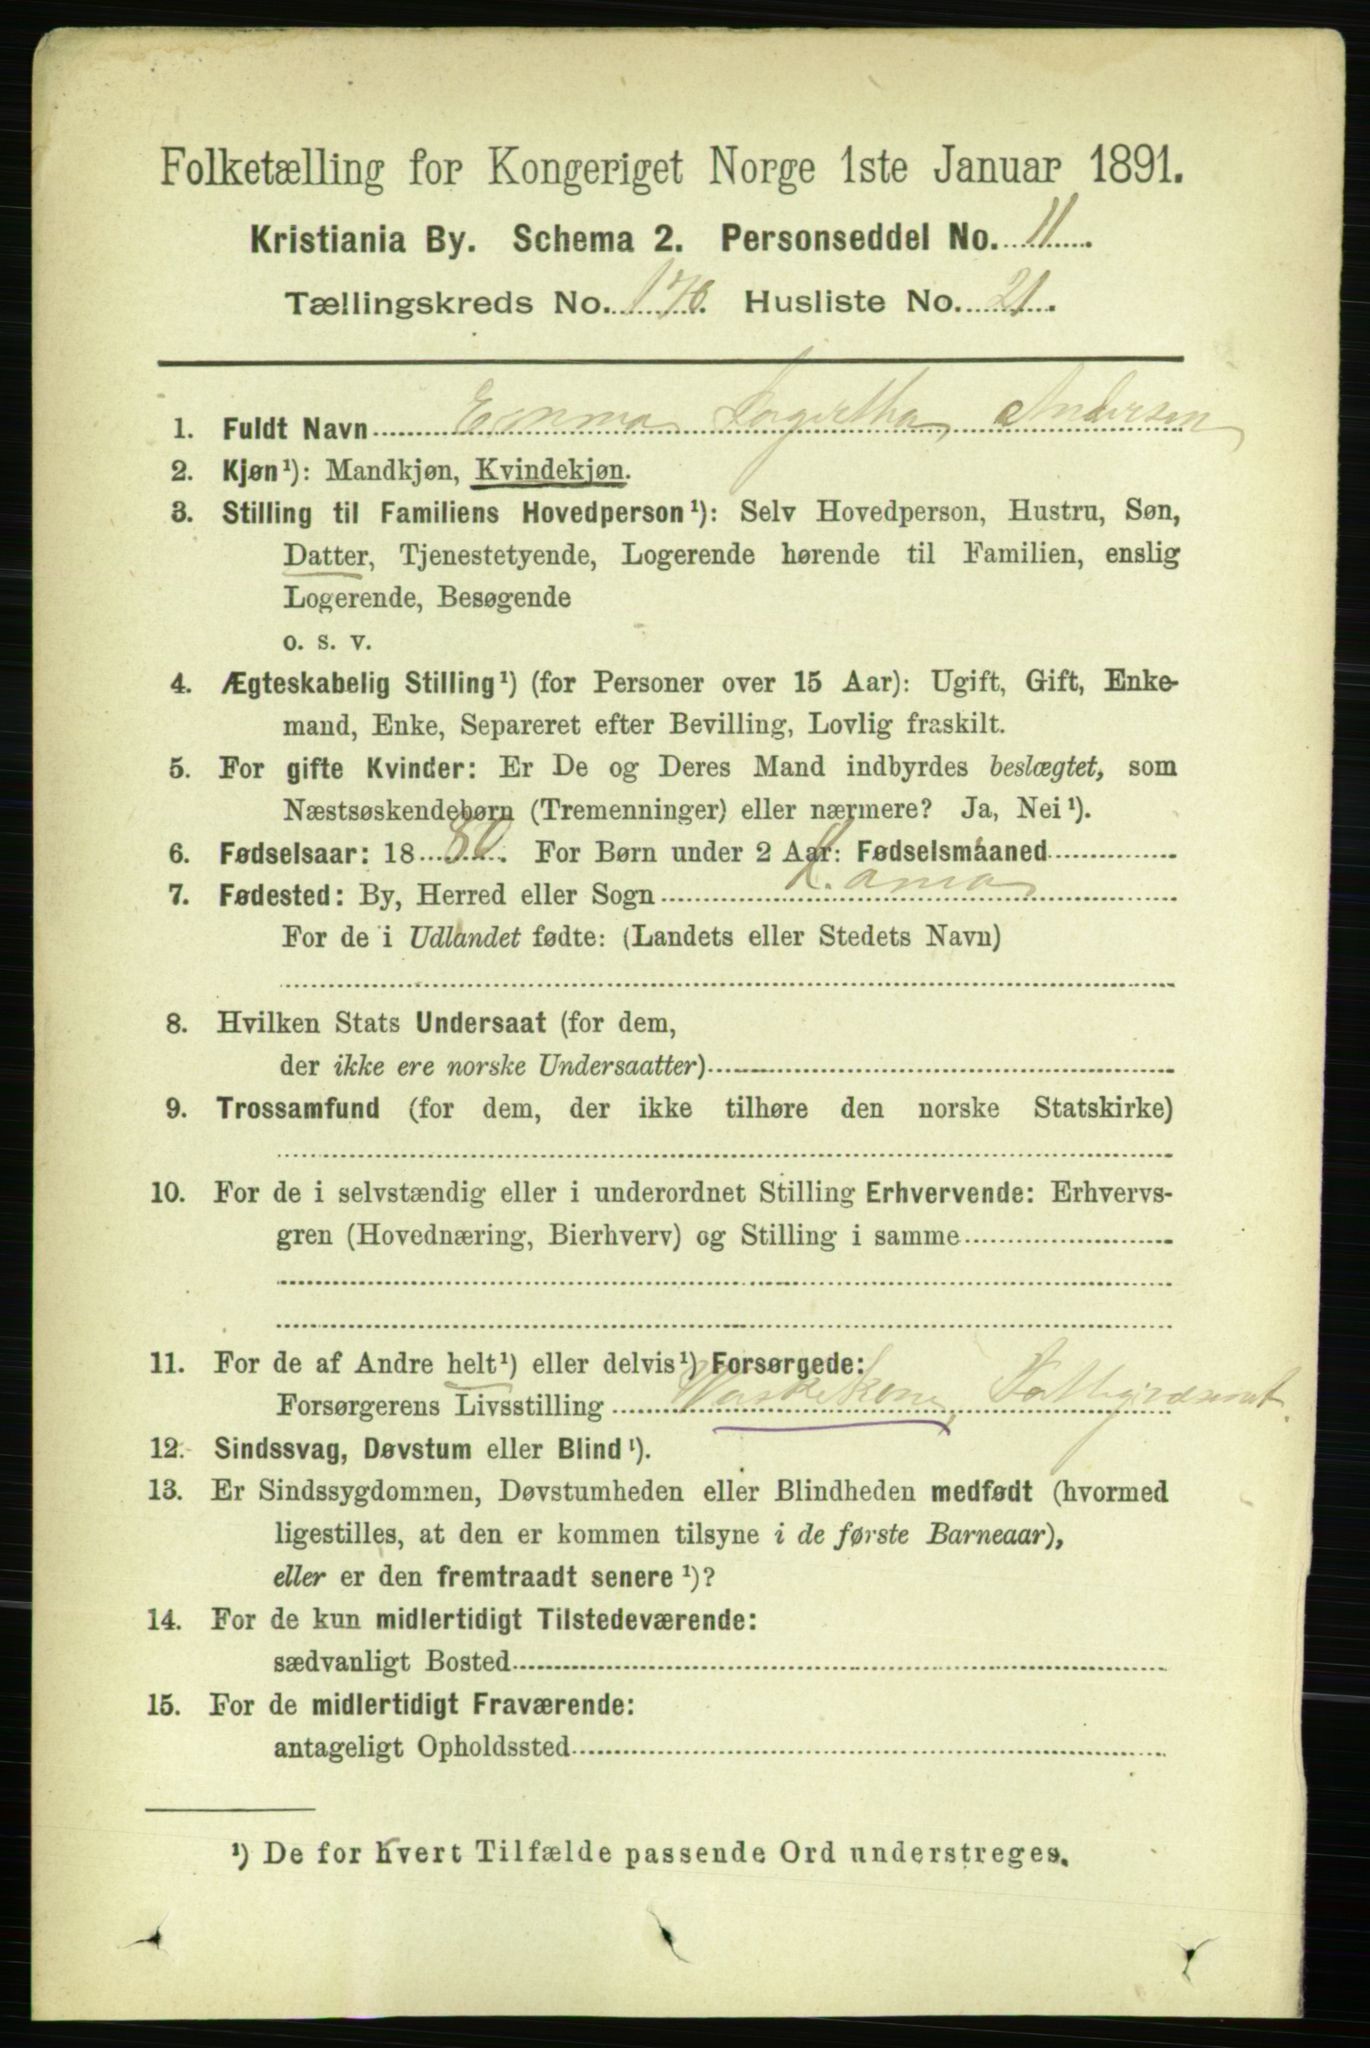 Folketælling for Kongeriget Norge 1ste Januar 1891.
Kristiania By. Schema 2. Personseddel No. 11.
Tællingskreds No. 170. Husliste No. 21.
1. Fuldt Navn Emma Lagertha Andersen
2. Kjøn¹): Mandkjøn, Kvindekjøn.
3. Stilling til Familiens Hovedperson¹): Selv Hovedperson, Hustru, Søn,
Datter, Tjenestetyende, Logerende hørende til Familien, enslig
Logerende, Besøgende
o. s. v.
4. Ægteskabelig Stilling¹) (for Personer over 15 Aar): Ugift, Gift, Enke-
mand, Enke, Separeret efter Bevilling, Lovlig fraskilt.
5. For gifte Kvinder: Er De og Deres Mand indbyrdes beslægtet, som
Næstsøskendebørn (Tremenninger) eller nærmere? Ja, Nei¹).
6. Fødselsaar: 1880. For Børn under 2 Aar: Fødselsmåaned
7. Fødested: By, Herred eller Sogn
For de i Udlandet fødte: (Landets eller Stedets Navn)
8. Hvilken Stats Undersaat (for dem,
der ikke ere norske Undersaatter)
9. Trossamfund (for dem, der ikke tilhøre den norske Statskirke)
10. For de i selvstændig eller i underordnet Stilling Erhvervende: Erhvervs-
gren (Hovednæring, Bierhverv) og Stilling i samme
11. For de af Andre helt¹) eller delvis¹) Forsørgede:
Forsørgerens Livsstilling Vaskekone, Fattigvæsenet.
12. Sindssvag, Døvstum eller Blind¹).
13. Er Sindssygdommen, Døvstumheden eller Blindheden medfødt (hvormed
ligestilles, at den er kommen tilsyne i de første Barneaar),
eller er den fremtraadt senere¹)?
14. For de kun midlertidigt Tilstedeværende:
sædvanligt Bosted
15. For de midlertidigt Fraværende:
antageligt Opholdssted
¹) De for hvert Tilfælde passende Ord understreges.